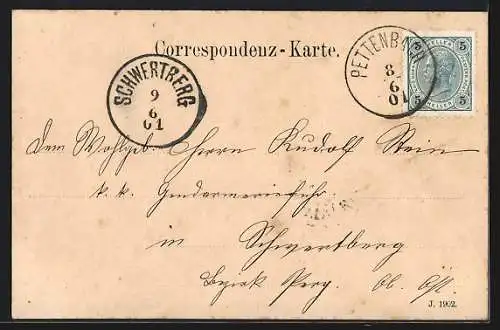 Correspondenz-Karte.
PETTENBACH
8
6
01
5 HELLER 5
5 HELLER 5
SCHWERTBERG
9
6
01
Dem Wohlgeb. Herrn Rudolf Stein
k. k. Gendarmerieführ
in
Schwertberg
Bezirk Perg. Ob. Öst.
J. 1902.